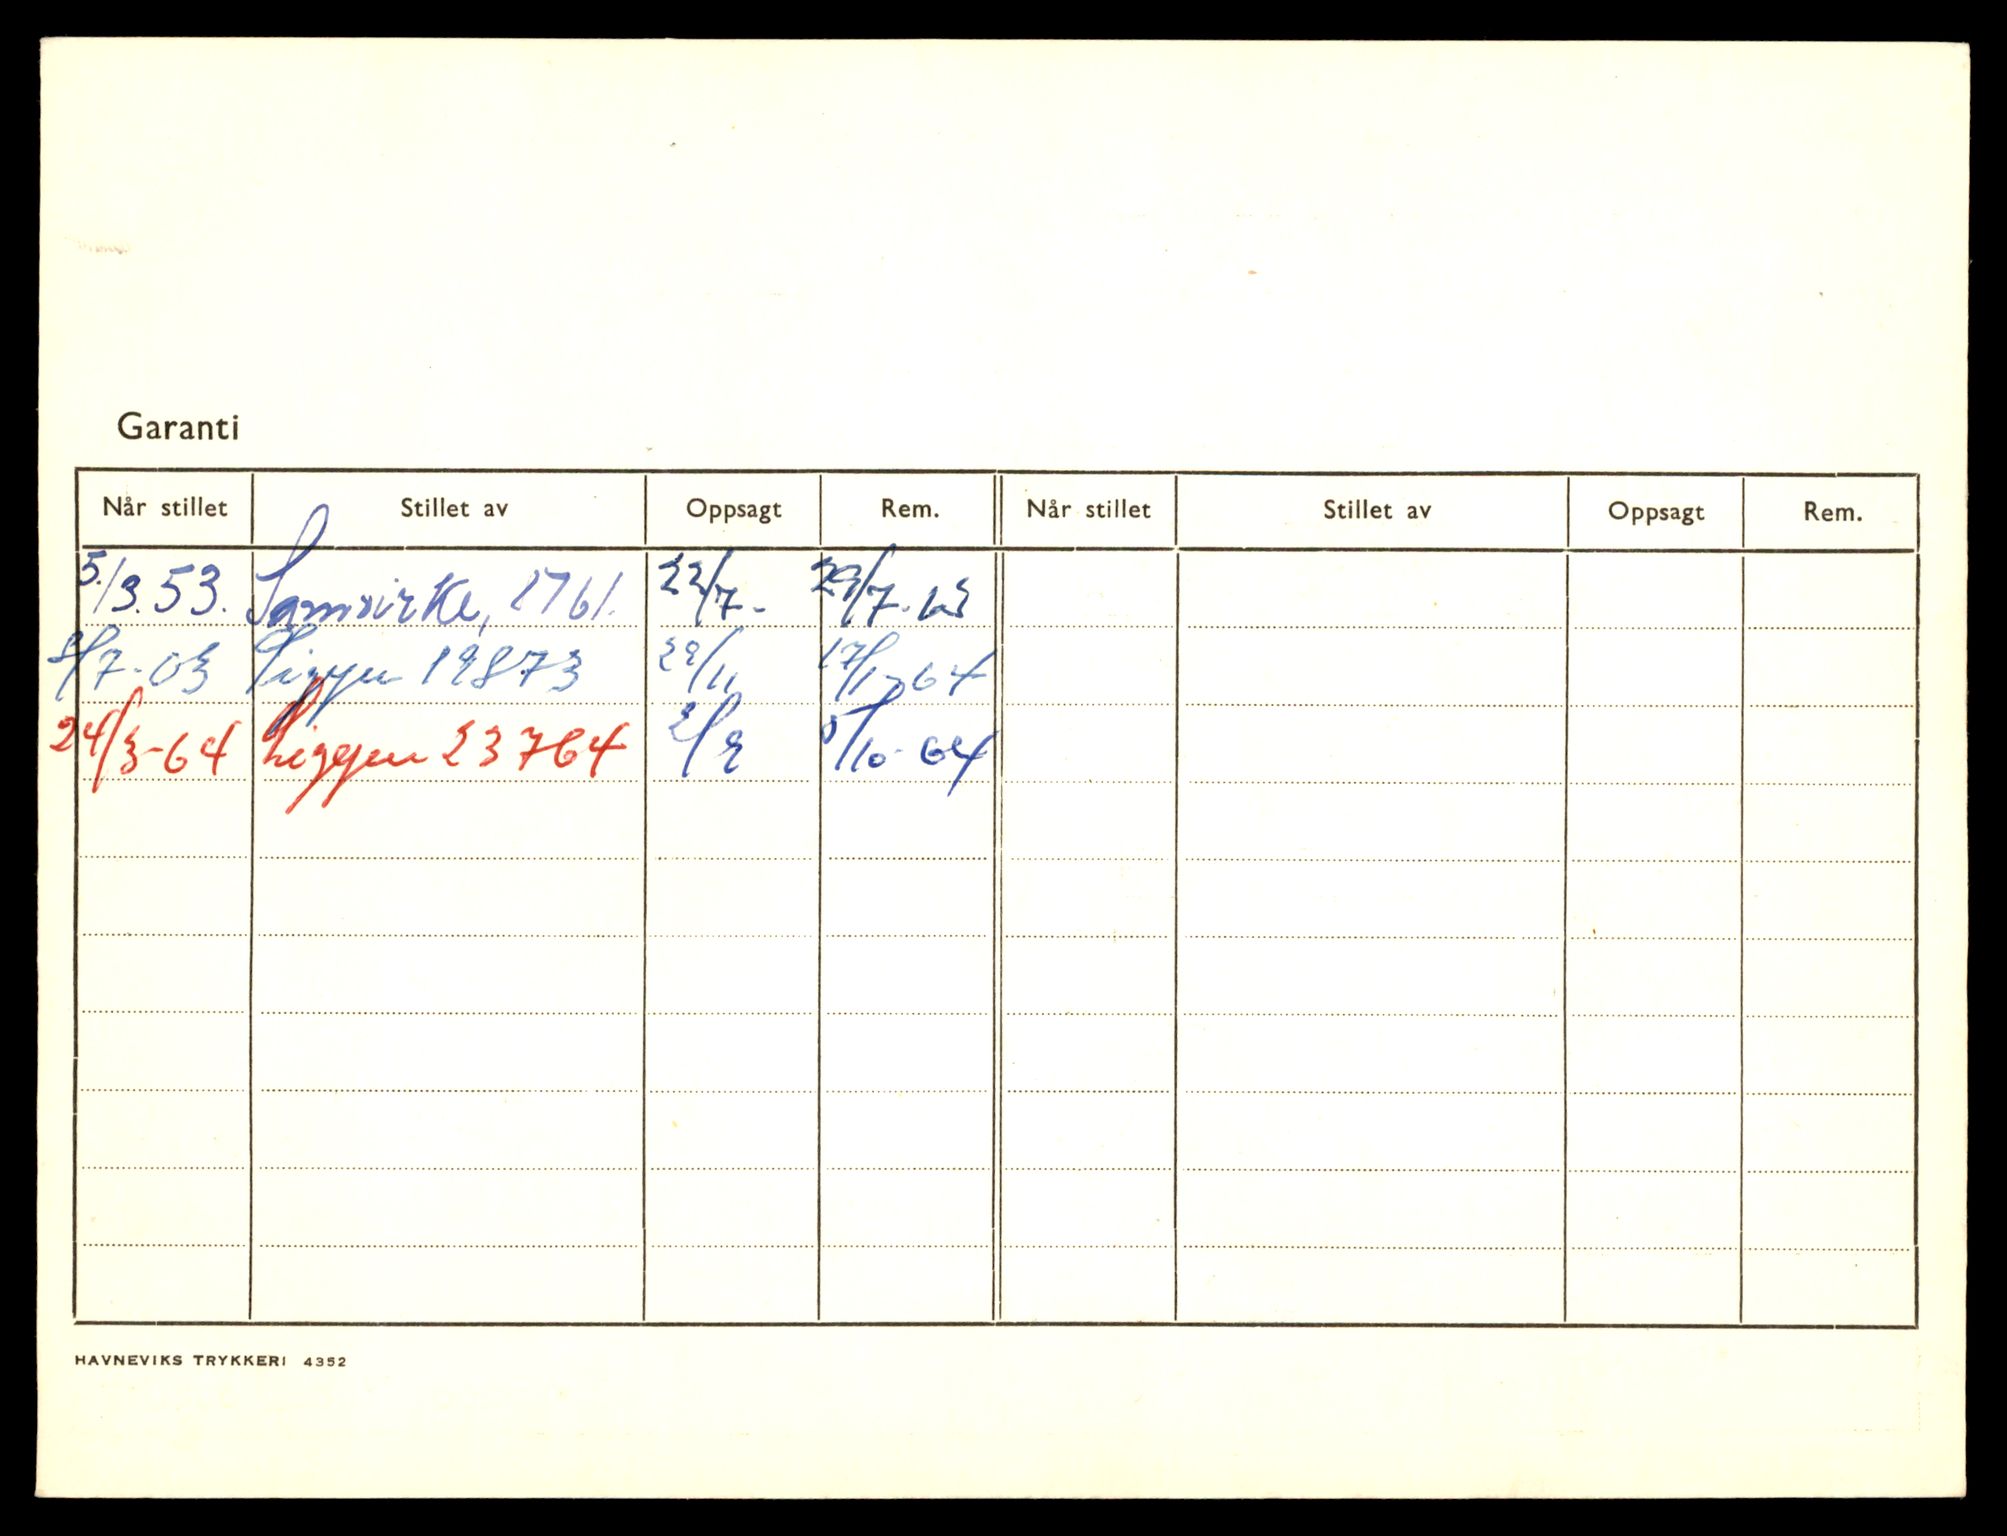 Garanti
Når stillet Stillet av Oppsagt Rem. Når stillet Stillet av Oppsagt Rem.
5./3.53. Samvirke, 1761. 22/7- 29/7-63
8/7-63 Siggen 19873 29/11 17/1-64
24/3-64 Siggen 23764 2/9 5/10-64
HAVNEVIKS TRYKKERI 4352